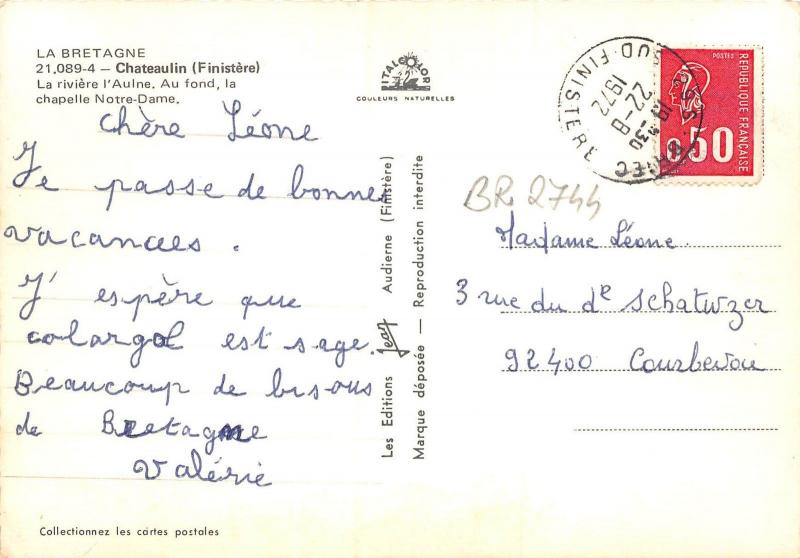 LA BRETAGNE
21.089-4 — Chateaulin (Finistère)
La rivière l'Aulne. Au fond, la
chapelle Notre-Dame.
ITALCOLOR
COULEURS NATURELLES
Chère Léone
Je passe de bonnes
vacances.
J'espère que
colargol est sage.
Beaucoup de bisous
de Bretagne
Valérie
Collectionnez les cartes postales
Les Editions Jean Audierne (Finistère)
Marque déposée — Reproduction interdite
19 H 30
22-8
1972
FINISTERE
POSTES
REPUBLIQUE FRANÇAISE
0.50
BR 2744
Madame Léone
3 rue du dr schatwzer
92400 Courbevoie